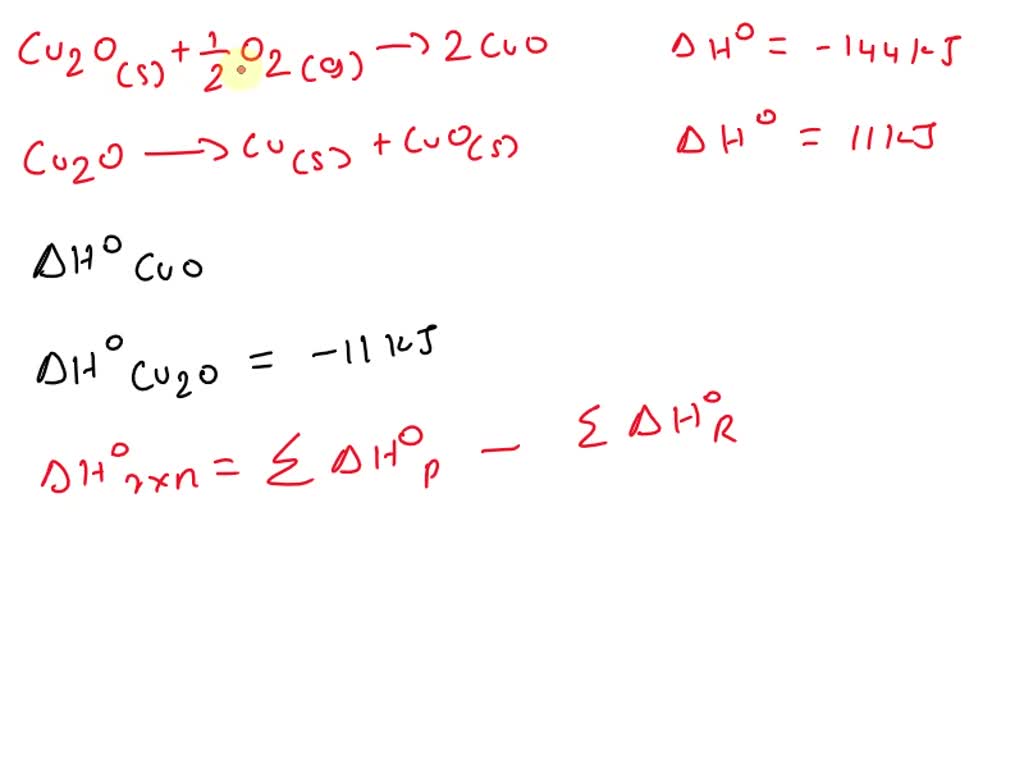 Cu2O(s) + 1/2 O2(g) → 2CuO ΔH° = -144 kJ
Cu2O → Cu(s) + CuO(s) ΔH° = 11 kJ
ΔH° CuO
ΔH° Cu2O = -11 kJ
ΔH° rxn = Σ ΔH°P - Σ ΔH°R